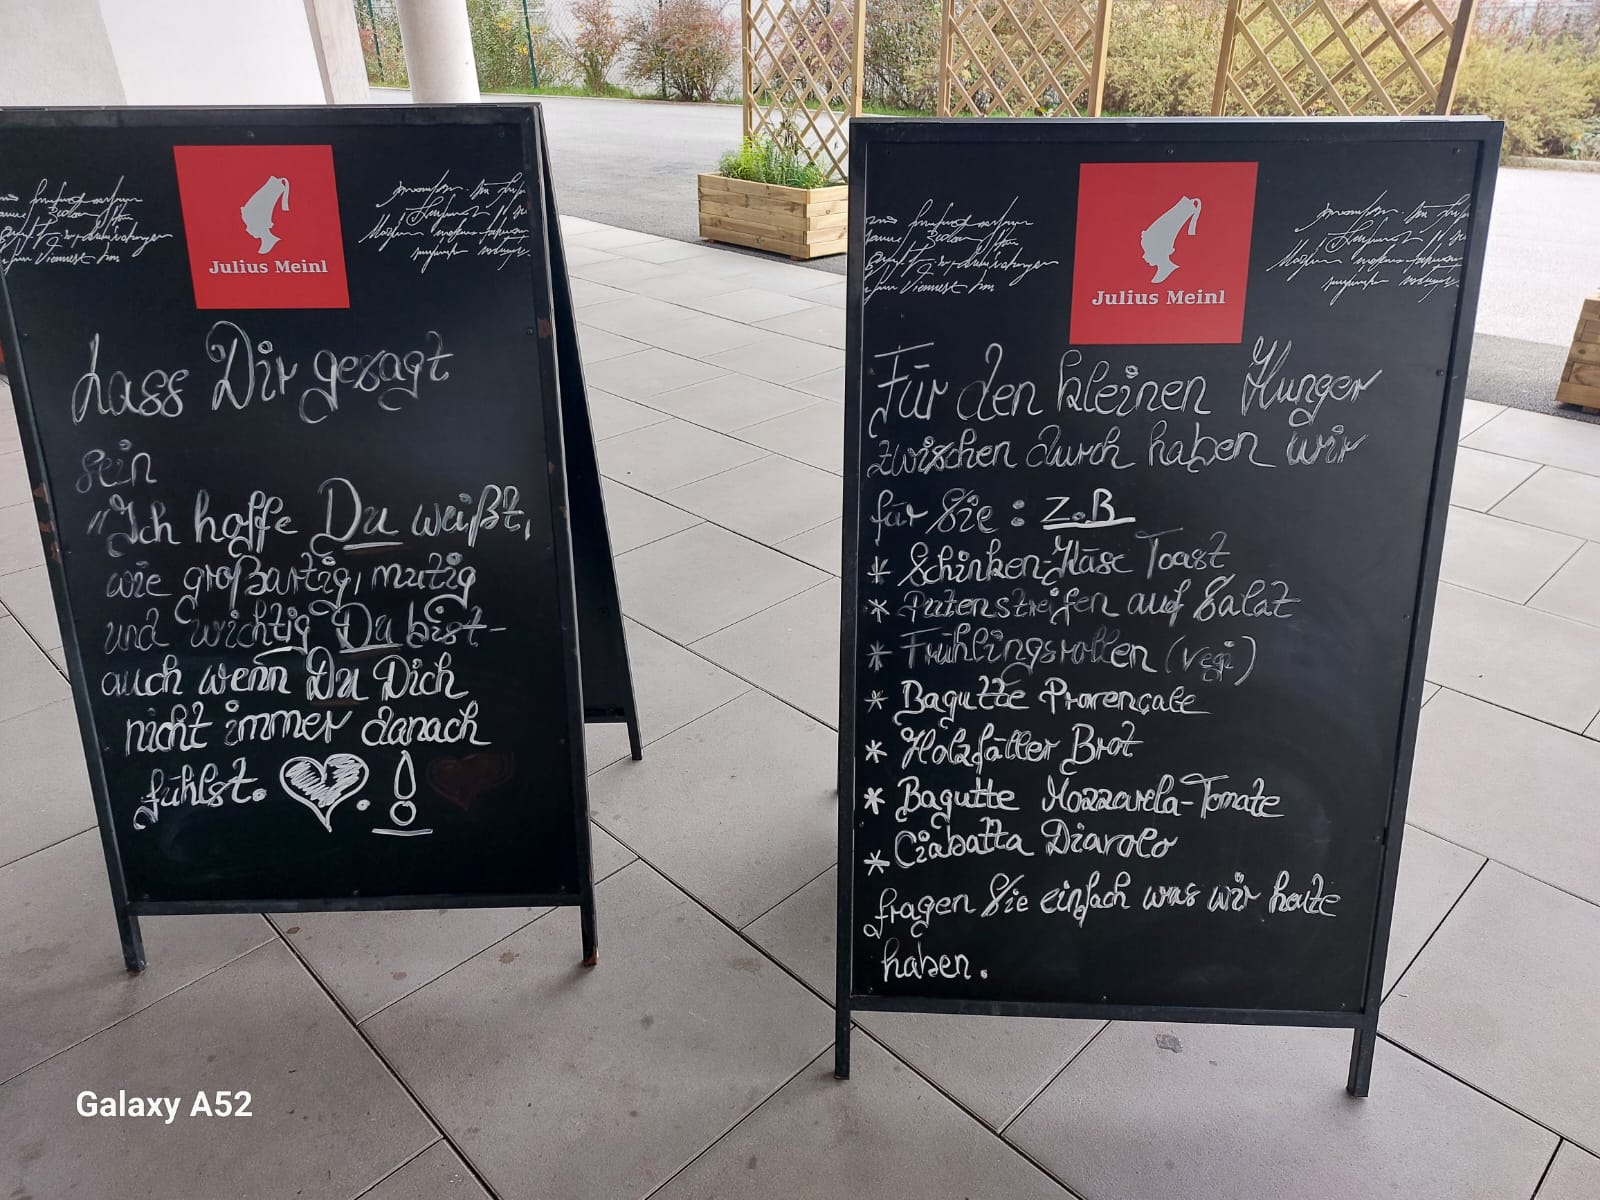 Julius Meinl
Lass Dir gesagt
sein
"Ich hoffe Du weißt,
wie großartig, mutig
und wichtig Du bist-
auch wenn Du Dich
nicht immer danach
fühlst. !
Julius Meinl
Für den kleinen Hunger
zwischen durch haben wir
für Sie: z.B
* Schinken-Käse Toast
* Putenstreifen auf Salat
* Frühlingsrollen (vegi)
* Bagutte Provençale
* Holzfäller Brot
* Bagutte Mozzarella-Tomate
* Ciabatta Diavolo
fragen Sie einfach was wir heute
haben.
Galaxy A52